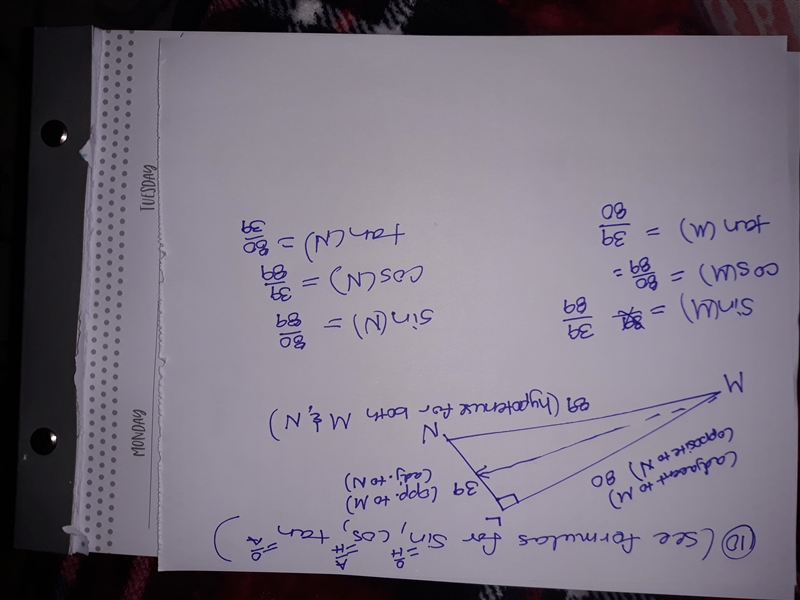 10 (see formulas for Sin, cos, tan)
= O/H = A/H = O/A
L
(adjacent to M)
(opposite to N) 80
39 (opp. to M)
(adj. to N)
M
N
89 (hypotenuse for both M & N)
Sin(M) = 39/89
cos(M) = 80/89 =
tan(M) = 39/80
Sin(N) = 80/89
cos(N) = 39/89
tan(N) = 80/39
MONDAY
TUESDAY